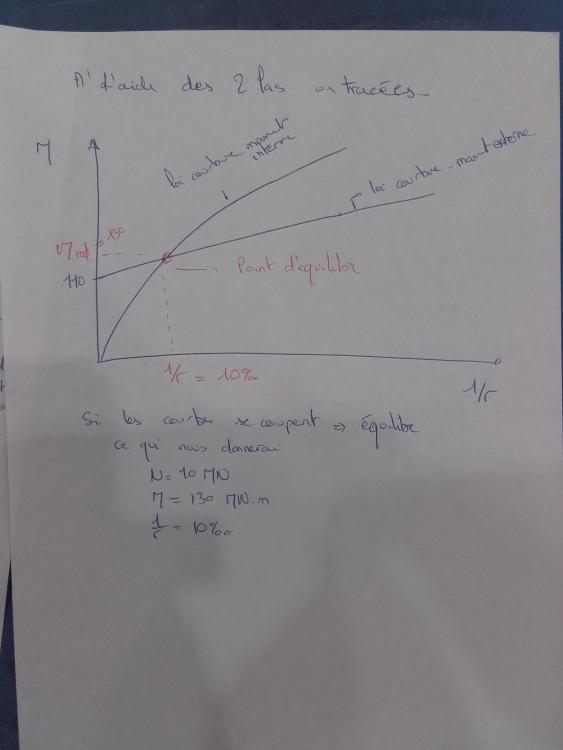 A' l'aide des 2 lois on tracées
M
loi courbure moment
interne
loi courbure - moment externe
130
M red
110
Point d'équilibre
1/r = 10‰
1/r
Si les courbes se coupent => équilibre
ce qui nous donnerai
N = 10 MN
M = 130 MN.m
1/r = 10‰.